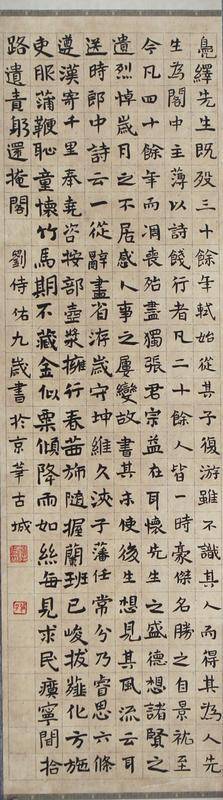 鳧繹先生既歿三十餘年軾始從其子復游雖不識其人而得其為人先
生為閣中主薄以詩餞行者凡二十餘人皆一時豪傑名勝之自景祐至
今凡四十餘年而凋喪殆盡獨張君宗益在耳懷先生之盛德想諸賢之
遺烈悼歲月之不居感人事之屢變故書其末使後生想見其風流云耳
送時郎中詩云一從辭畫省洊歲守坤維久浹于藩任常分乃睿思六條
遵漢寄千里奉堯咨按部壺漿擁行春茜旆隨握蘭班已峻拔薤化方施
吏服蒲鞭恥童懷竹馬期不藏金似粟傾降雨如絲每見求民瘼寧聞拾
路遺責躬還掩閣 劉侍佑九歲書於京華古城